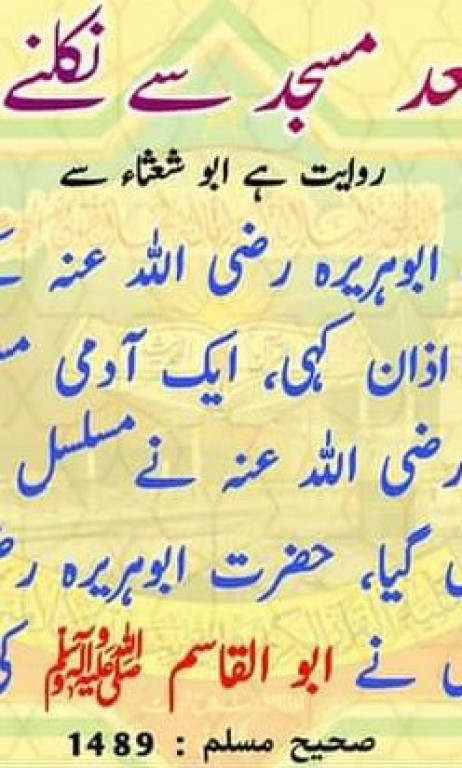 عد مسجد سے نکلنے
روایت ہے ابو شعثاء سے
ابوہریرہ رضی اللہ عنہ کے
اذان کہی، ایک آدمی
رضی اللہ عنہ نے مسلسل
گیا، حضرت ابوہریرہ رض
نے ابو القاسم ﷺ کی
صحیح مسلم : 1489